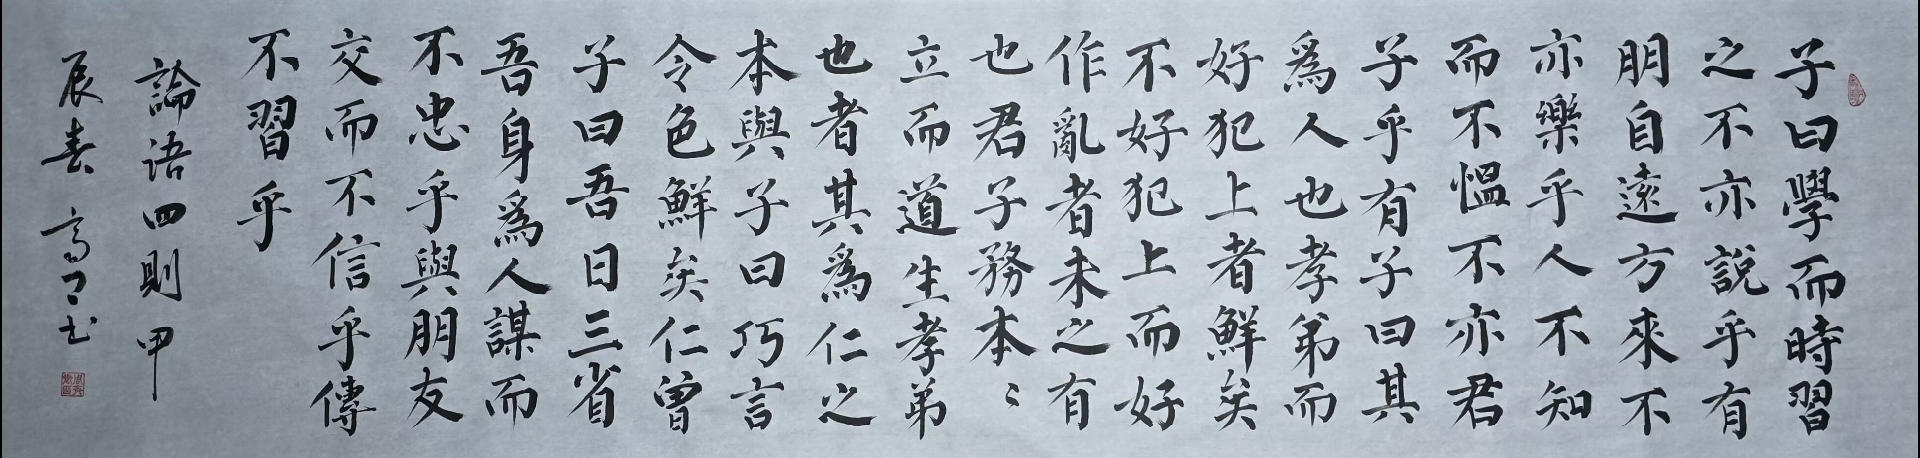 子曰學而時習
之不亦説乎有
朋自遠方來不
亦樂乎人不知
而不愠不亦君
子乎有子曰其
爲人也孝弟而
好犯上者鮮矣
不好犯上而好
作亂者未之有
也君子務本〻
立而道生孝弟
也者其爲仁之
本與子曰巧言
令色鮮矣仁曾
子曰吾日三省
吾身爲人謀而
不忠乎與朋友
交而不信乎傳
不習乎
論語四則甲
辰春